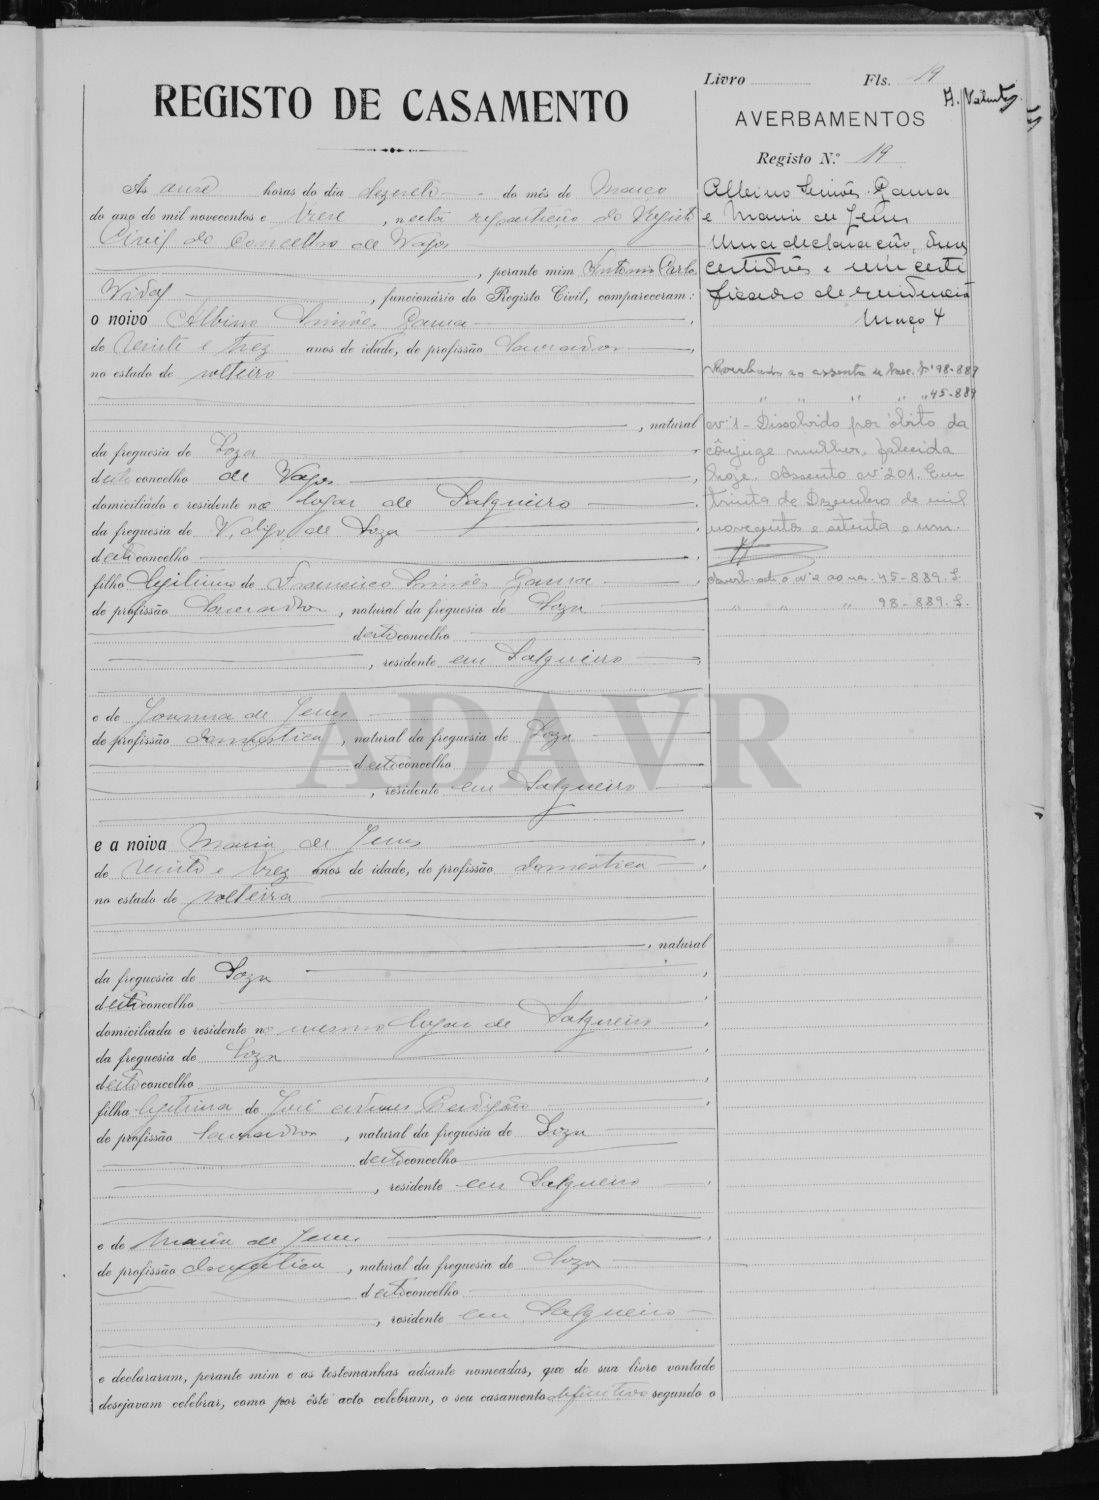 Livro Fls. 19
REGISTO DE CASAMENTO
AVERBAMENTOS
Registo N.º 19
Ás onze horas do dia dezoito do mês de Março
do ano de mil novecentos e treze, nesta repartição do Registo
Civil do Concelho de Vagos
, perante mim Antonio Carlos
Vidal, funcionário do Registo Civil, compareceram:
o noivo Albino Simões Gama
de vinte e trez anos de idade, de profissão lavrador,
no estado de solteiro
, natural
da freguesia de Soza
deste concelho de Vagos,
domiciliádo e residente no lugar de Salgueiro,
da freguesia de Soza
deste concelho
filho legitimo de Francisco Simões Gama,
de profissão lavrador, natural da freguesia de Soza
deste concelho
, residente em Salgueiro
e de Joanna de Jesus
de profissão domestica, natural da freguesia de Soza
deste concelho
, residente em Salgueiro
e a noiva Maria de Jesus,
de vinte e trez anos de idade, de profissão domestica,
no estado de solteira
, natural
da freguesia de Soza,
deste concelho,
domiciliada e residente no mesmo lugar de Salgueiro,
da freguesia de Soza,
deste concelho,
filha legitima de José
de profissão lavrador, natural da freguesia de Soza
deste concelho
, residente em Salgueiro
e de Maria de Jesus,
de profissão domestica, natural da freguesia de Soza
deste concelho
, residente em Salgueiro
e declararam, perante mim e as testemunhas adiante nomeadas, que de sua livre vontade
desejavam celebrar, como por êste acto celebram, o seu casamento definitivo segundo o
Albino Simões Gama
e Maria de Jesus
Uma declaração, duas
certidões e um certi
ficado de residencia
Março 4
Averbado ao assento de nasc. Nº 98-889
" " " " " 45-889
Nº 1 - Dissolvido por óbito da
cônjuge mulher, falecida
hoje. Assento nº 201. Em
trinta de Dezembro de mil
novecentos e setenta e um.
45-889.
" " " 98-889.
ADAVR